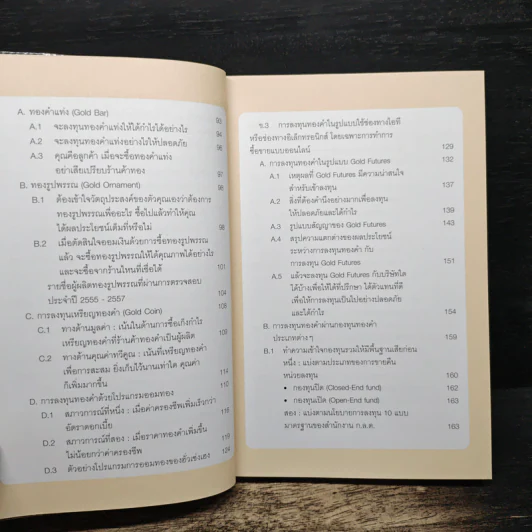 A. ทองคำแท่ง (Gold Bar) 93
A.1 จะลงทุนทองคำแท่งให้ได้กำไรได้อย่างไร 94
A.2 จะลงทุนทองคำแท่งอย่างไรให้ปลอดภัย 96
A.3 คุณคือลูกค้า เมื่อจะซื้อทองคำแท่ง
อย่าเสียเปรียบร้านค้าทอง 97
B. ทองรูปพรรณ (Gold Ornament) 98
B.1 ต้องเข้าใจวัตถุประสงค์ของตัวคุณเองว่าต้องการ
ทองรูปพรรณเพื่ออะไร ซื้อไปแล้วทำให้คุณ
ได้ผลประโยชน์เต็มที่หรือไม่ 98
B.2 เมื่อตัดสินใจออมเงินด้วยการซื้อทองรูปพรรณ
แล้ว จะซื้อทองรูปพรรณให้ได้คุณภาพได้อย่างไร
และจะซื้อจากร้านไหนที่เชื่อได้ 101
รายชื่อผู้ผลิตทองรูปพรรณที่ผ่านการตรวจสอบ
ประจำปี 2555 - 2557 104
C. การลงทุนเหรียญทองคำ (Gold Coin) 108
C.1 ทางด้านมูลค่า : เน้นในด้านการซื้อเก็งกำไร
เหรียญทองคำที่ร้านค้าทองคำเป็นผู้ผลิต 109
C.2 ทางด้านคุณค่าทวีคูณ : เน้นที่เหรียญทองคำ
เพื่อการสะสม ยิ่งเก็บไว้นานเท่าใด คุณค่า
ก็เพิ่มมากขึ้น 114
D. การลงทุนทองคำด้วยโปรแกรมออมทอง 110
D.1 สภาวการณ์ที่หนึ่ง : เมื่อค่าครองชีพเพิ่มเร็วกว่า
อัตราดอกเบี้ย 116
D.2 สภาวการณ์ที่สอง : เมื่อราคาทองคำเพิ่มขึ้น
ไม่น้อยกว่าค่าครองชีพ 119
D.3 ตัวอย่างโปรแกรมการออมทองของฮั่วเซ่งเฮง 124
ข.3 การลงทุนทองคำในรูปแบบใช้ช่องทางไอที
หรือช่องทางอิเล็กทรอนิกส์ โดยเฉพาะการทำการ
ซื้อขายแบบออนไลน์ 129
A. การลงทุนทองคำในรูปแบบ Gold Futures 132
A.1 เหตุผลที่ Gold Futures มีความน่าสนใจ
สำหรับเข้าลงทุน 137
A.2 สิ่งที่ต้องคำนึงอย่างมากเพื่อลงทุน
ให้ปลอดภัยและได้กำไร 139
A.3 รูปแบบสัญญาของ Gold Futures 143
A.4 สรุปความแตกต่างของผลประโยชน์
ระหว่างการลงทุนทองคำ กับ
การลงทุน Gold Futures 151
A.5 แล้วจะลงทุน Gold Futures กับบริษัทใด
ได้บ้างเพื่อให้ได้ที่ปรึกษา ได้ตัวแทนที่ดี
เพื่อให้การลงทุนเป็นไปอย่างปลอดภัย
และได้กำไร 154
B. การลงทุนทองคำผ่านกองทุนทองคำ
ประเภทต่างๆ 159
B.1 ทำความเข้าใจกองทุนรวมให้มีพื้นฐานเสียก่อน
หนึ่ง : แบ่งตามประเภทของการขายคืน
หน่วยลงทุน 160
• กองทุนปิด (Closed-End fund) 162
• กองทุนเปิด (Open-End fund) 163
สอง : แบ่งตามนโยบายการลงทุน 10 แบบ
มาตรฐานของสำนักงาน ก.ล.ต. 163